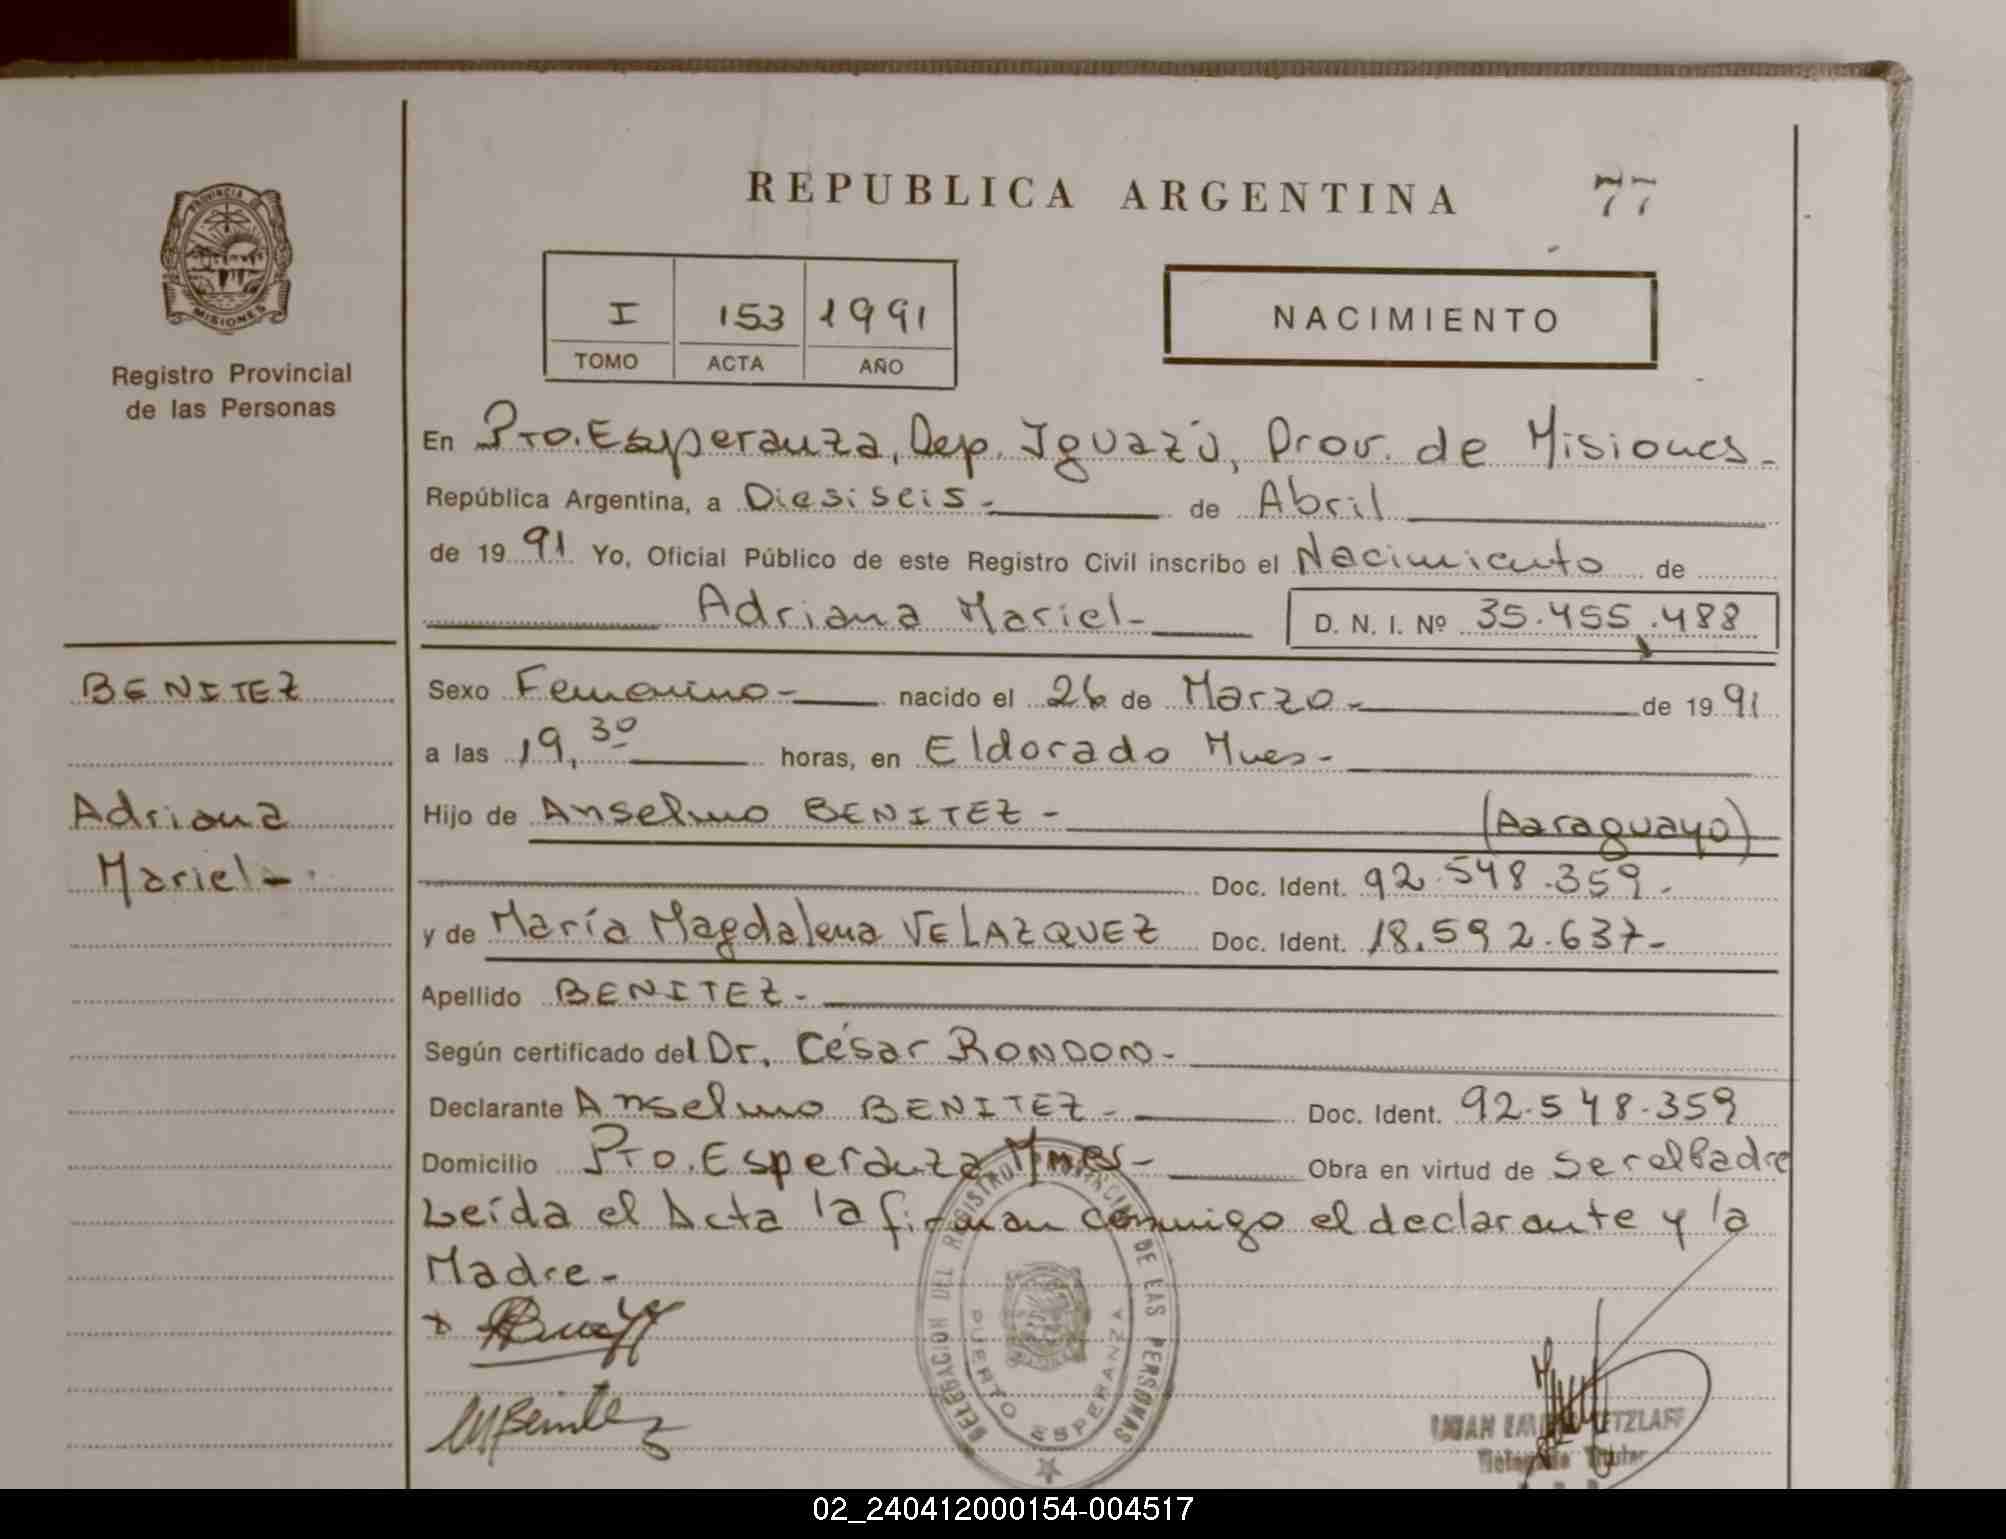 REPUBLICA ARGENTINA 77
PROVINCIA DE
MISIONES
Registro Provincial
de las Personas
I 153 1991
TOMO ACTA AÑO
NACIMIENTO
En Pto. Esperanza, Dep. Iguazú, Prov. de Misiones -
República Argentina, a Diesiseis - de Abril
de 1991 Yo, Oficial Público de este Registro Civil inscribo el Nacimiento de
Adriana Mariel - D. N. I. Nº 35.455.488
BENITEZ
Adriana
Mariel -
Sexo Femenino - nacido el 26 de Marzo - de 1991
a las 19,30 horas, en Eldorado Mnes -
Hijo de Anselmo BENITEZ - (Paraguayo)
Doc. Ident. 92.548.359 -
y de María Magdalena VELAZQUEZ Doc. Ident. 18.592.637 -
Apellido BENITEZ -
Según certificado del Dr. César RONDON -
Declarante Anselmo BENITEZ - Doc. Ident. 92.548.359
Domicilio Pto. Esperanza Mnes - Obra en virtud de ser el Padre
Leída el Acta la firman conmigo el declarante y la
Madre -
MBenitez
DELEGACION DEL REGISTRO PROVINCIAL DE LAS PERSONAS
PUERTO ESPERANZA
Titular
02_240412000154-004517